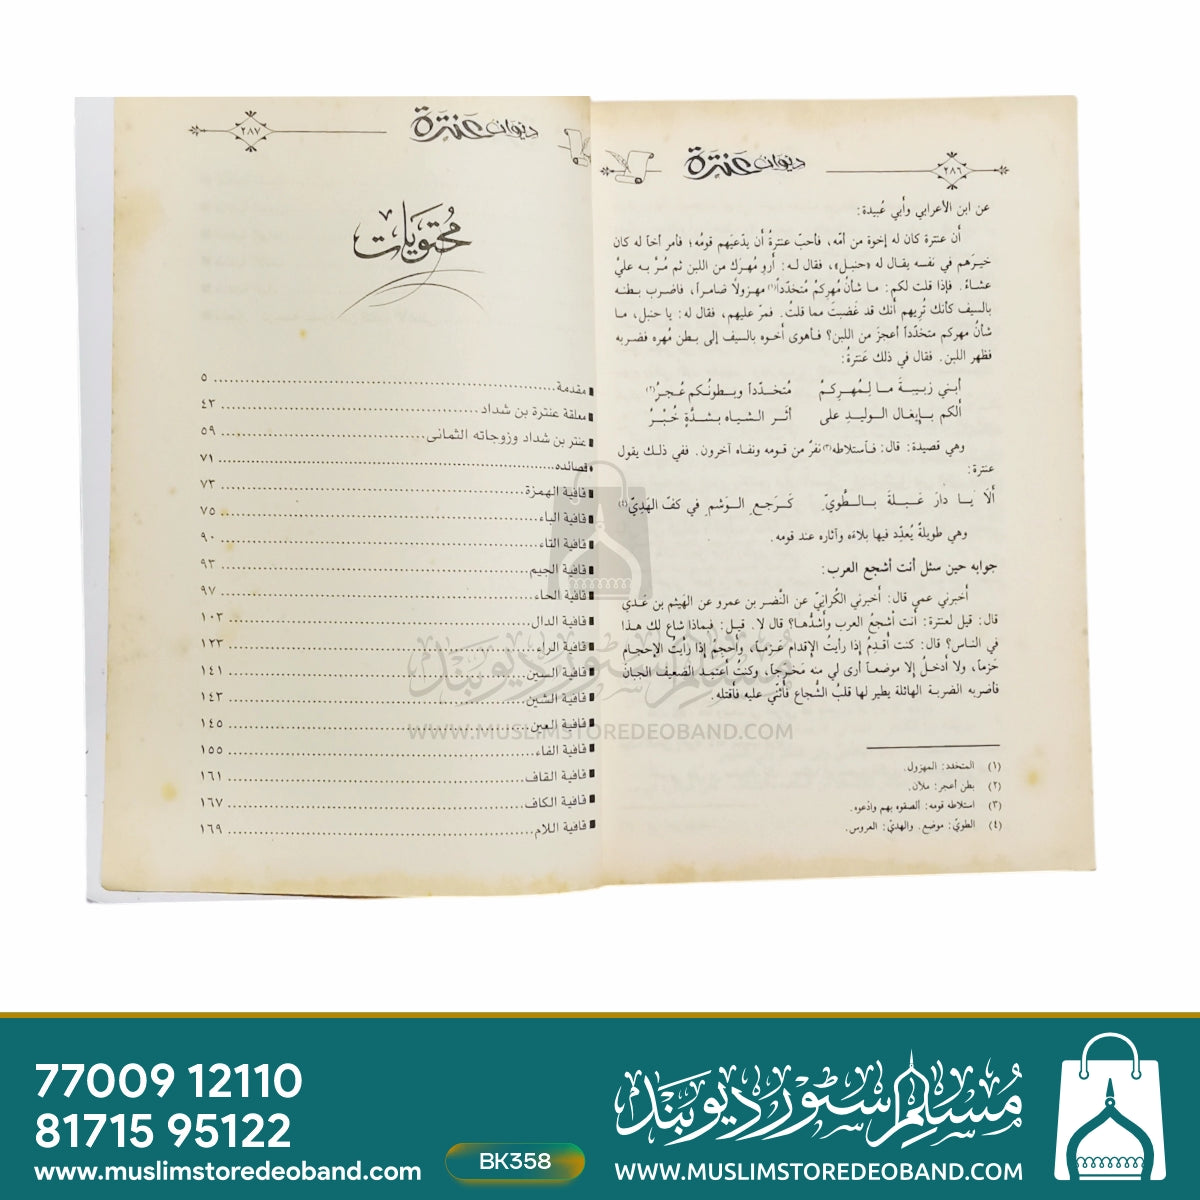 ٢٨٦
ديوان عنترة
عن ابن الأعرابي وأبي عُبيدة:
أن عنترة كان له إخوة من أمّه، فأحبّ عنترةُ أن يدّعيَهم قومُه؛ فأمر أخاً له كان
خيرَهم في نفسه يقال له «حنبل»، فقال له: أروِ مُهرَك من اللبن ثم مُرَّ به عليَّ
عشاءً. فإذا قلت لكم: ما شأنُ مُهرِكمُ مُتخدّداً(١) مهزولاً ضامراً، فاضرب بطنه
بالسيف كأنك تُريهم أنك قد غَضبتَ مما قلتُ. فمرّ عليهم، فقال له: يا حنبل، ما
شأنُ مهركم متخدّداً أعجزَ من اللبن؟ فأهوى أخوه بالسيف إلى بطن مُهره فضربه
فظهر اللبن. فقال في ذلك عَنترةُ:
أبني زبيبةَ ما لمُهركمُ مُتخدّداً وبطونُكم عُجرُ(٢)
ألكم بإيغال الوليد على أثر الشياه بشدّةٍ خُبْرُ
وهي قصيدة: قال: فاستلاطه(٣) نفرٌ من قومه ونفاه آخرون. ففي ذلك يقول
عنترة:
ألا يا دارَ عَبلةَ بالطَّويّ كَرَجعِ الوَشمِ في كفّ الهَدِيّ(٤)
وهي طويلةٌ يُعدِّد فيها بلاءَه وآثاره عند قومه.
جوابه حين سئل أنت أشجع العرب:
أخبرني عمي قال: أخبرني الكُرانيّ عن النَّضر بن عمرو عن الهَيثم بن عَدي
قال: قيل لعنترة: أنت أشجعُ العرب وأشدُّها؟ قال لا. قيل: فبماذا شاع لك هذا
في الناس؟ قال: كنت أُقدِمُ إذا رأيتُ الإقدام عَزماً، وأحجِمُ إذا رأيتُ الإحجام
حَزماً، ولا أدخلُ إلا موضعاً أرى لي منه مَخرجاً، وكنتُ أعتمد الضعيف الجبانَ
فأضربه الضربة الهائلة يطير لها قلبُ الشّجاع فأثني عليه فأقتله.
(١) المتخدد: المهزول.
(٢) بطن أعجر: ملآن.
(٣) استلاطه قومه: ألصقوه بهم وادعوه.
(٤) الطويّ: موضع. والهديّ: العروس.
ديوان عنترة
٢٨٧
مُحتويات
مقدمة ٥
معلقة عنترة بن شداد ٤٣
عنتر بن شداد وزوجاته الثمانى ٥٩
قصائده ٧١
قافية الهمزة ٧٣
قافية الباء ٧٥
قافية التاء ٩٠
قافية الجيم ٩٣
قافية الحاء ٩٧
قافية الدال ١٠٣
قافية الراء ١٢٣
قافية السين ١٤١
قافية الشين ١٤٣
قافية العين ١٤٥
قافية الفاء ١٥٥
قافية القاف ١٦١
قافية الكاف ١٦٧
قافية اللام ١٦٩
مسلم سٹور دیوبند
WWW.MUSLIMSTOREDEOBAND.COM
77009 12110
81715 95122
www.muslimstoredeoband.com
BK358
مسلم سٹور دیوبند
WWW.MUSLIMSTOREDEOBAND.COM